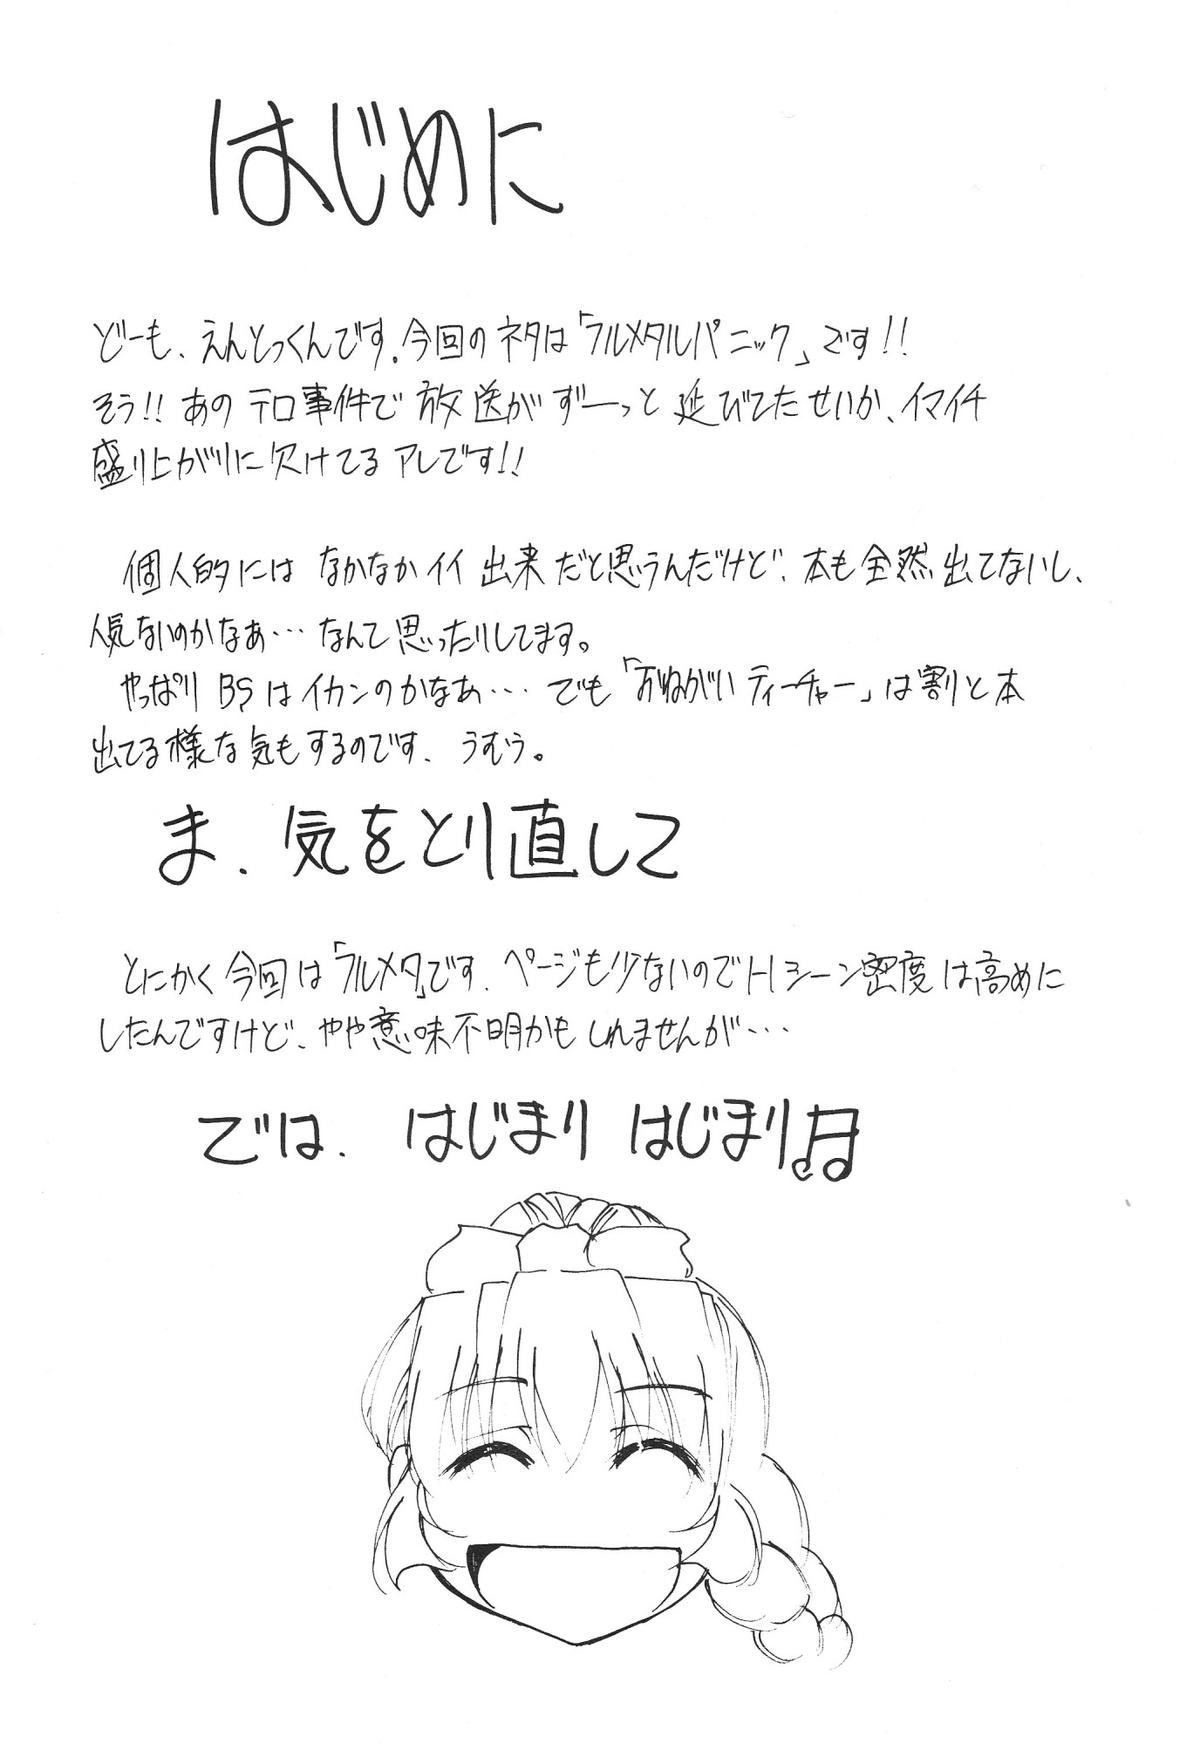 はじめに
どーも、えんとっくんです。今回のネタは「フルメタルパニック」です!!
そう!!あのテロ事件で放送がずーっと延びてたせいか、イマイチ
盛り上がりに欠けてるアレです!!
個人的にはなかなかイイ出来だと思うんだけど、本も全然出てないし、
人気ないのかなぁ・・・なんて思ったりしてます。
やっぱりBSはイカンのかなあ・・・でも「おねがいティーチャー」は割と本
出てる様な気もするのです、うむう。
ま、気をとり直して
とにかく今回は「フルメタ」です。ページも少ないのでHシーン密度は高めに
したんですけど、やや意味不明かもしれませんが・・・
では、はじまりはじまり♫